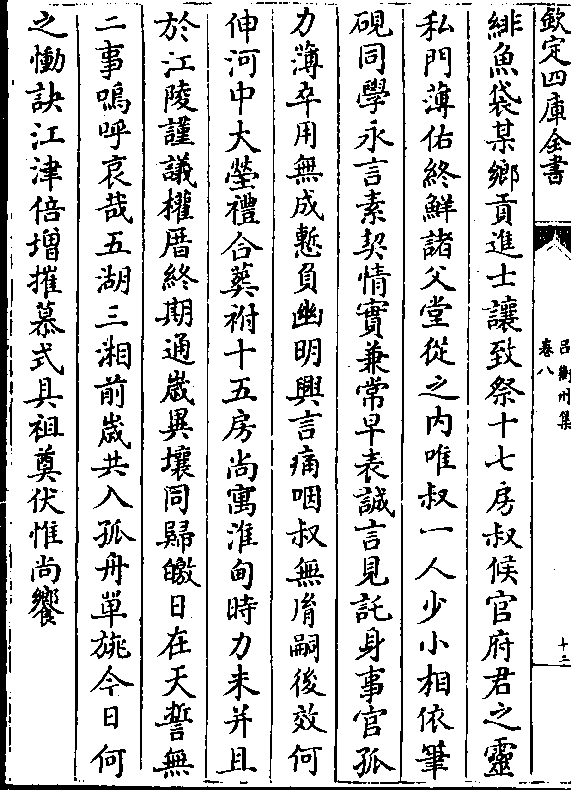 欽定四庫全書
吕衡州集
卷八
十二
緋魚袋某鄉貢進士讓致祭十七房叔候官府君之靈
私門薄佑終鮮諸父堂從之内唯叔一人少小相依筆
硯同學永言素契情實兼常早表誠言見託身事官孤
力薄卒用無成慙負幽明興言痛咽叔無𦙍嗣後效何
伸河中大塋禮合葬祔十五房尚寓淮甸時力未并且
於江陵謹議權厝終期通嵗異壤同歸皦日在天誓無
二事嗚呼哀哉五湖三湘前嵗共入孤舟單旐今日何
之慟訣江津倍增摧慕式具祖奠伏惟尚饗